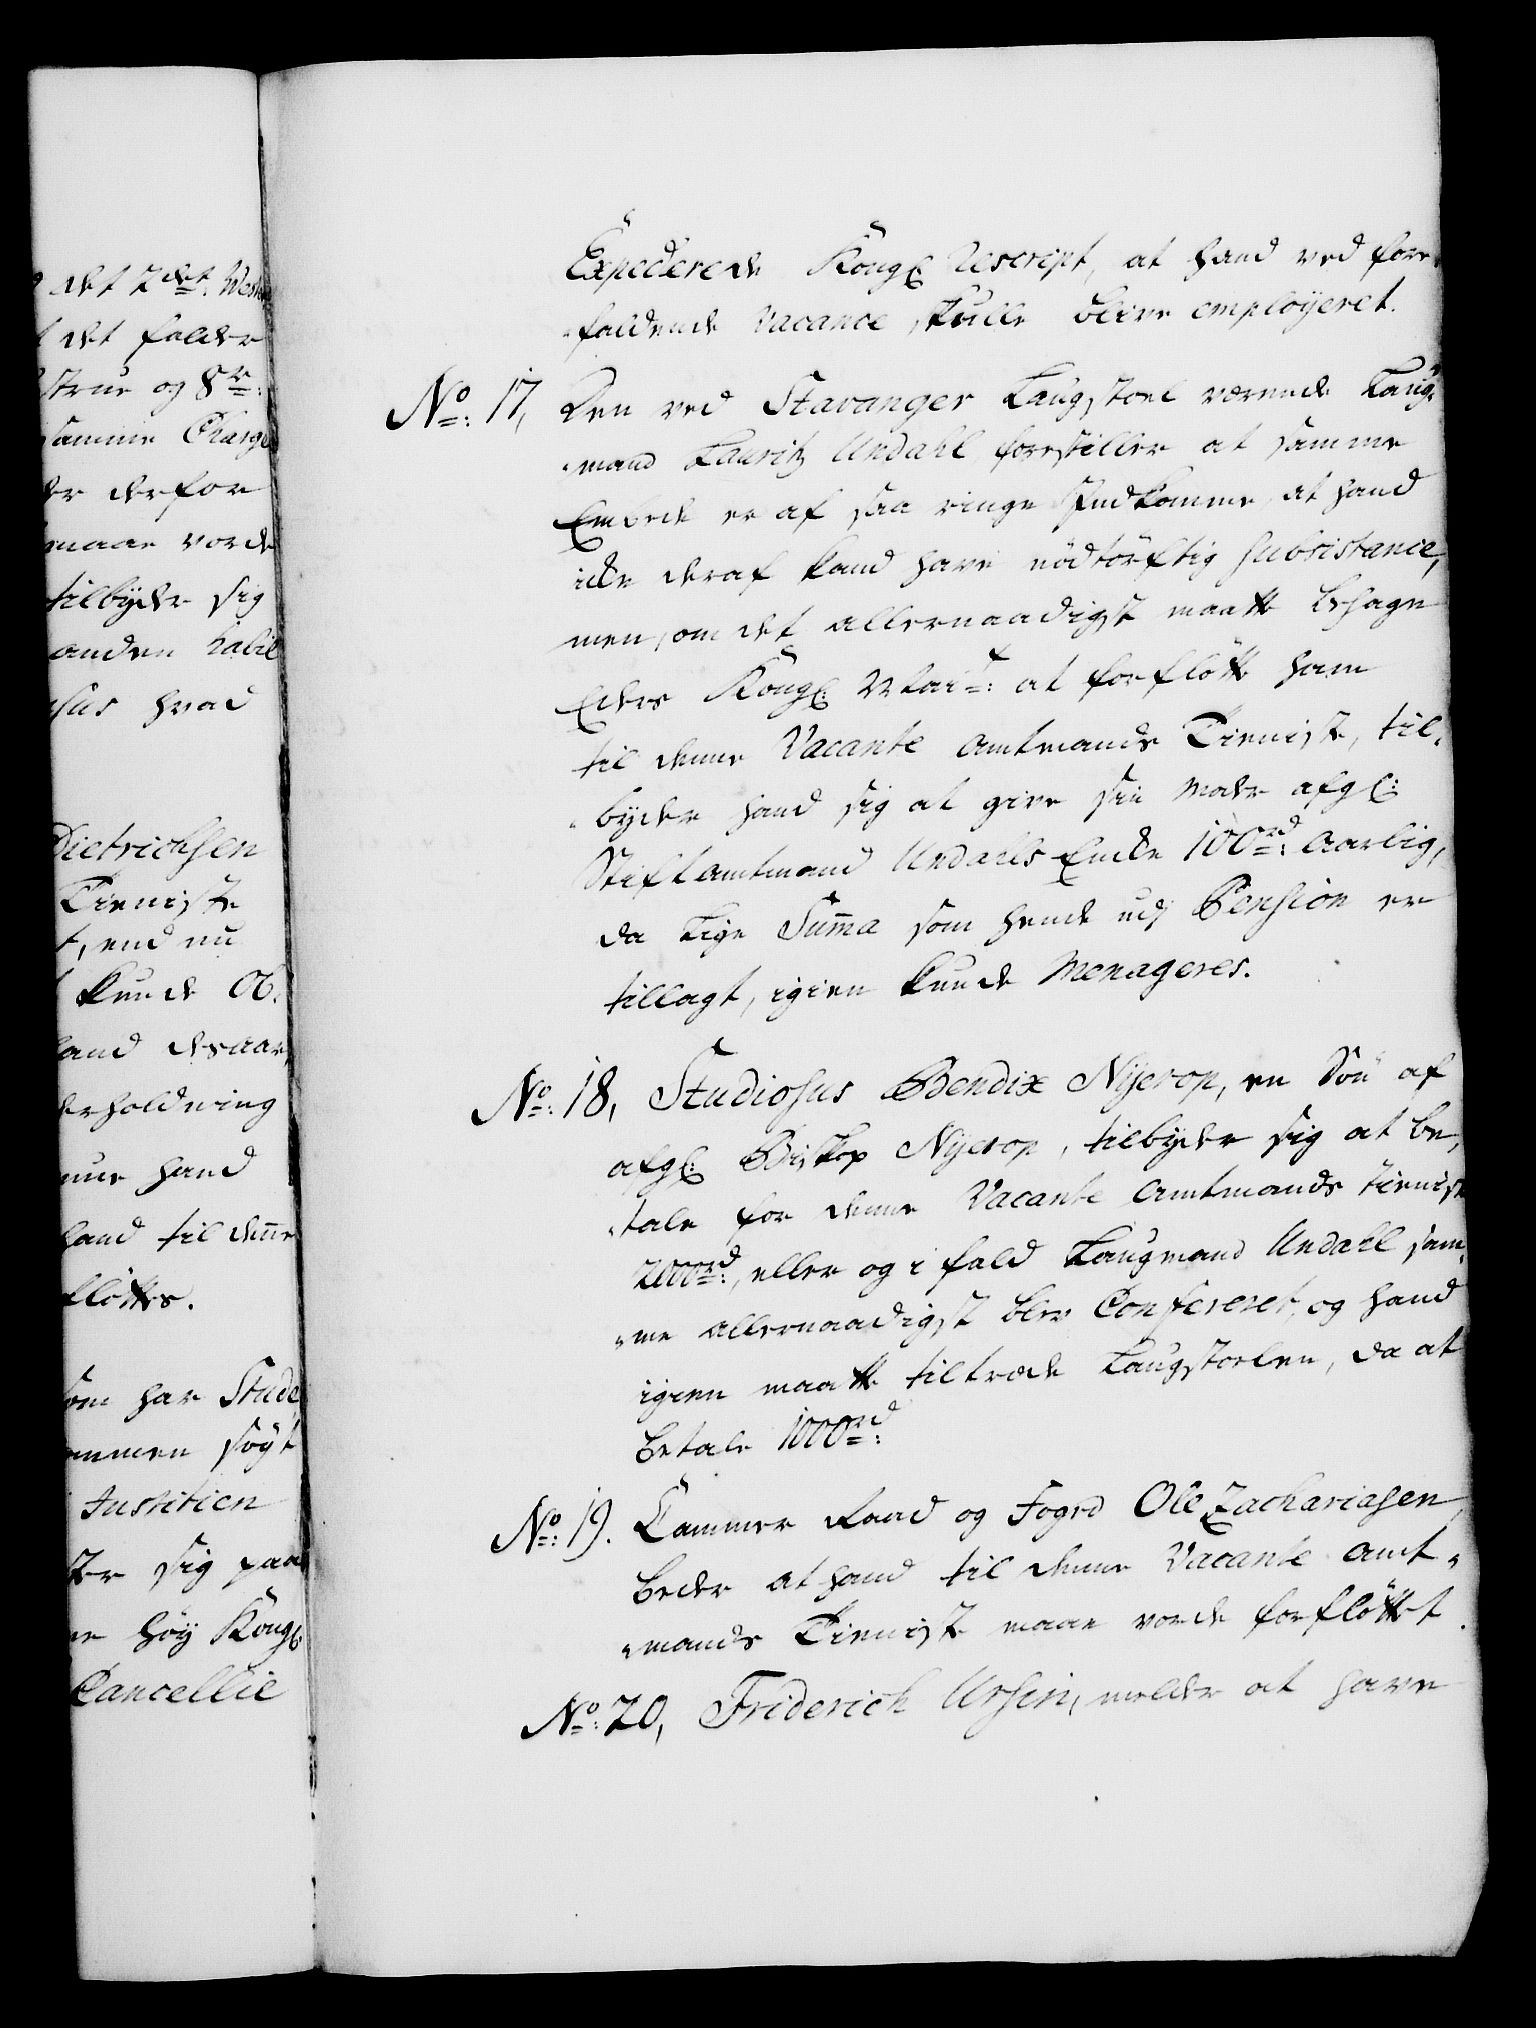 det 2det West
det falder
strue og 8v:
samme Charge
derfor
maae vorde
tilbyder sig
anden habil
hvad
Dietrichsen
Tieniste
t, end nu
kunde Ob.
land desaar,
erholdning
hand
land til deñe
fløttes.
som har Stude,
ommen søgt
Justitien
ter sig paa
høy Kongl:
Cancellie
Expederede Kongl: Rescript, at hand ved fore,
„faldende Vacance skulle blive employeret.
No: 17, Den ved Stavanger Laugstoel værende Laug,
„mand Lauritz Undahl forestiller at samme
Embede er af saa ringe Indkomme, at hand
icke deraf kand have nødtørftig subsistance,
men, om det allernaadigst maatte behage
Eders Kongl: Mait: at forfløtte ham
til denne Vacante Amtmands Tieniste, til,
„byder hand sig at give sin Moder afgl:
Stiftamtmand Undahls Encke 100rd: Aarlig,
da lige Sum̃a som hende udj Pension er
tillagt, igien kunde Menageres.
No: 18, Studiosus Bendix Nijerop, en Søn af
afgl: Biskop Nijerop, tilbyder sig at be,
„tale for denne Vacante Amtmands tienist
2000rd:, eller og i fald Laugmand Undahl sam,
„me allernaadigst blev Confereret, og hand
igien maatte tiltræde Laugstoelen, da at
betale 1000rd:
No: 19. Cammer Raad og Foged Ole Zachariasen,
beder at hand til denne Vacante Amt,
„mands Tieniste maae vorde forfløttet.
No: 20, Friderich Ursin, melder at have